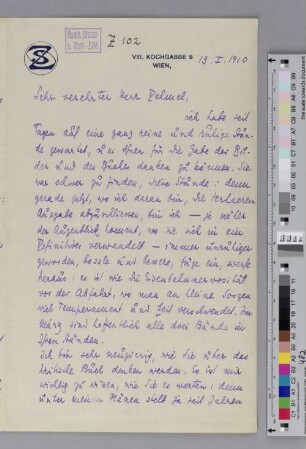 SZ
Hamb. Staats-
u. Univ.-Bibl.
Z 102
VIII. KOCHGASSE 8
WIEN,
13. I. 1910
Sehr verehrter Herr Dehmel,
ich habe seit
Tagen auf eine ganz reine und ruhige Stun-
de gewartet, um Ihnen für die Gabe des Bil-
des und des Buches danken zu können. Sie
war schwer zu finden, diese Stunde: denn
gerade jetzt, wo ich daran bin, die Verhaeren
Ausgabe abzuschliessen, bin ich — je näher
der Augenblick kommt, wo sie sich in ein
Definitives verwandelt — immer unruhiger
geworden, bastle und bessere, füge ein, werfe
heraus: es ist wie die Eisenbahnnervosität
vor der Abfahrt, wo man an kleine Sorgen
viel Temperament und Zeit verschwendet. Im
März sind hoffentlich alle drei Bände in
Ihren Händen.
Ich bin sehr neugierig, wie Sie über das
kritische Buch denken werden. Es ist mir
wichtig zu wissen, wie Sie es werten: denn
unter meinen Plänen steht ja seit Jahren